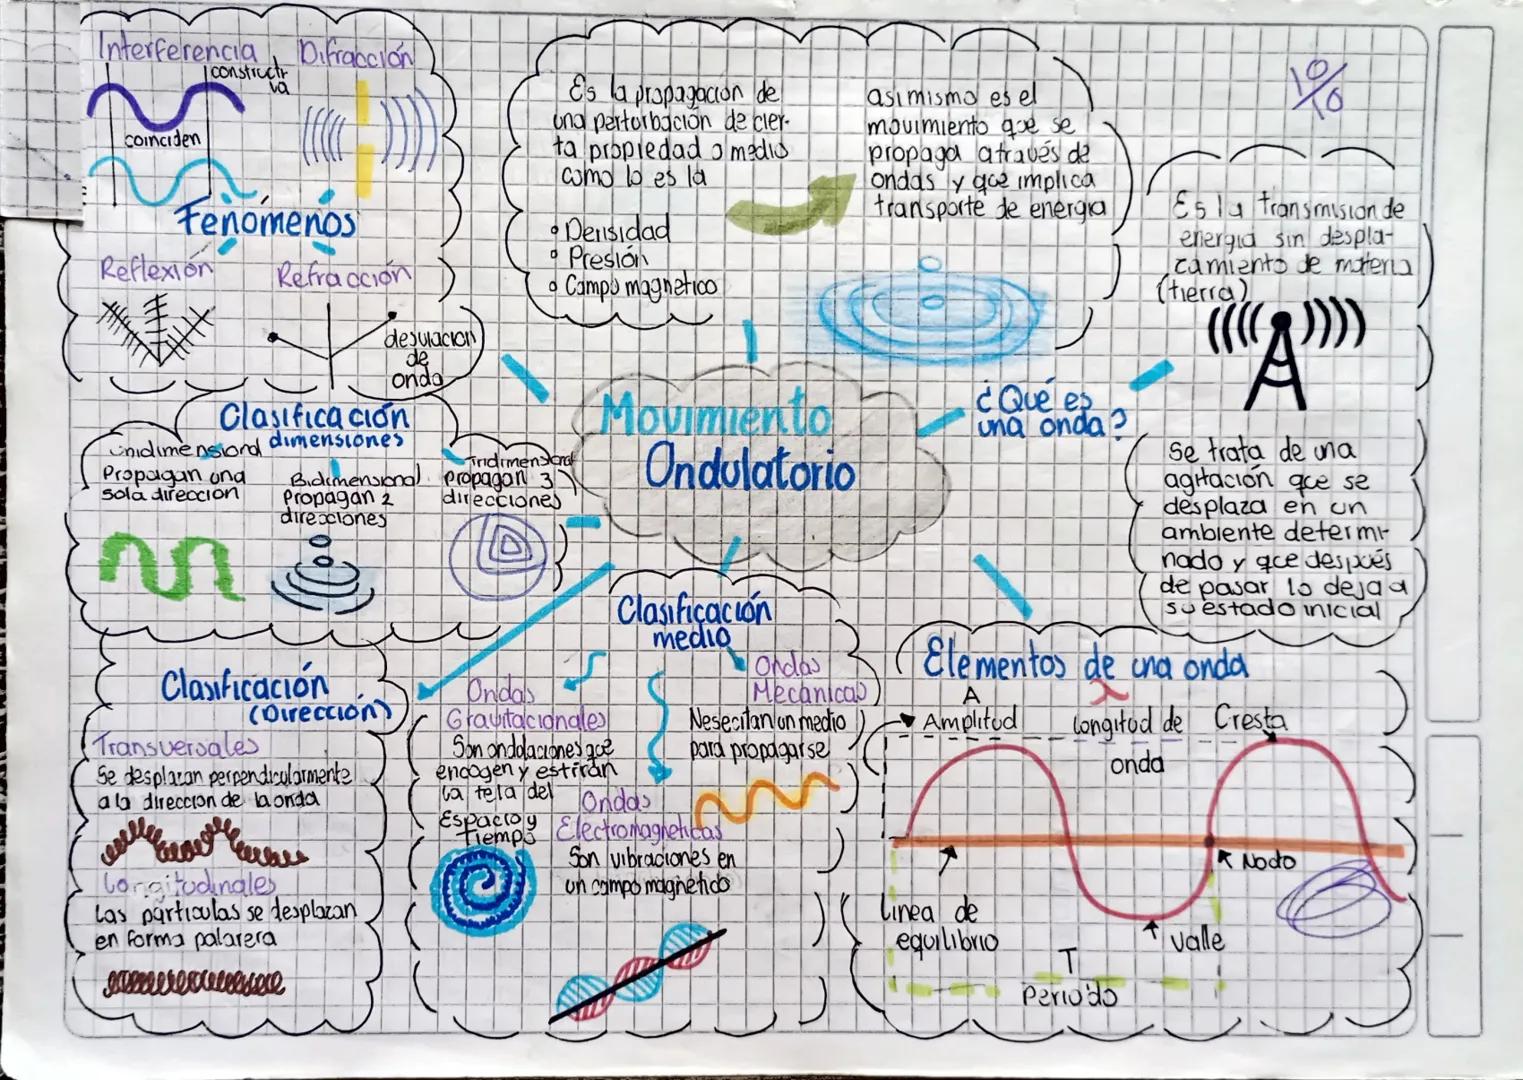 Interferencia
constructi
va
coinciden
Difracción
Fenómenos
Reflexión
Refracción
desviacion
de
onda
Es la propagación de
una perturbación de cier-
ta propiedad o medio
como lo es la
• Densidad
• Presión
• Campo magnetico
asimismo es el
movimiento que se
propaga através de
ondas y que implica
transporte de energia
10/10
Es la transmision de
energia sin despla-
zamiento de materia
(tierra)
¿Qué es
una onda?
Se trata de una
agitación que se
desplaza en un
ambiente determi-
nado y que después
de pasar lo deja a
su estado inicial
Movimiento
Ondulatorio
Clasificación
dimensiones
Unidimensional
Propagan una
sola dirección
Bidimensional
Propagan 2
direcciones
Tridimensional
propagan 3
direcciones
Clasificación
(Dirección)
Transversales
Se desplazan perpendicularmente
a la direccion de la onda
Longitudinales
Las particulas se desplazan
en forma palarera
Clasificación
medio
Ondas
Gravitacionales
Son ondulaciones que
encogen y estiran
la tela del
Espacio y
Tiempo
Ondas
Electromagneticas
Son vibraciones en
un campo magnetico
Ondas
Mecánicas
Nesecitan un medio
para propagarse
Elementos de una onda
A
Amplitud
λ
longitud de
onda
Cresta
Nodo
Linea de
equilibrio
Valle
T
Periodo